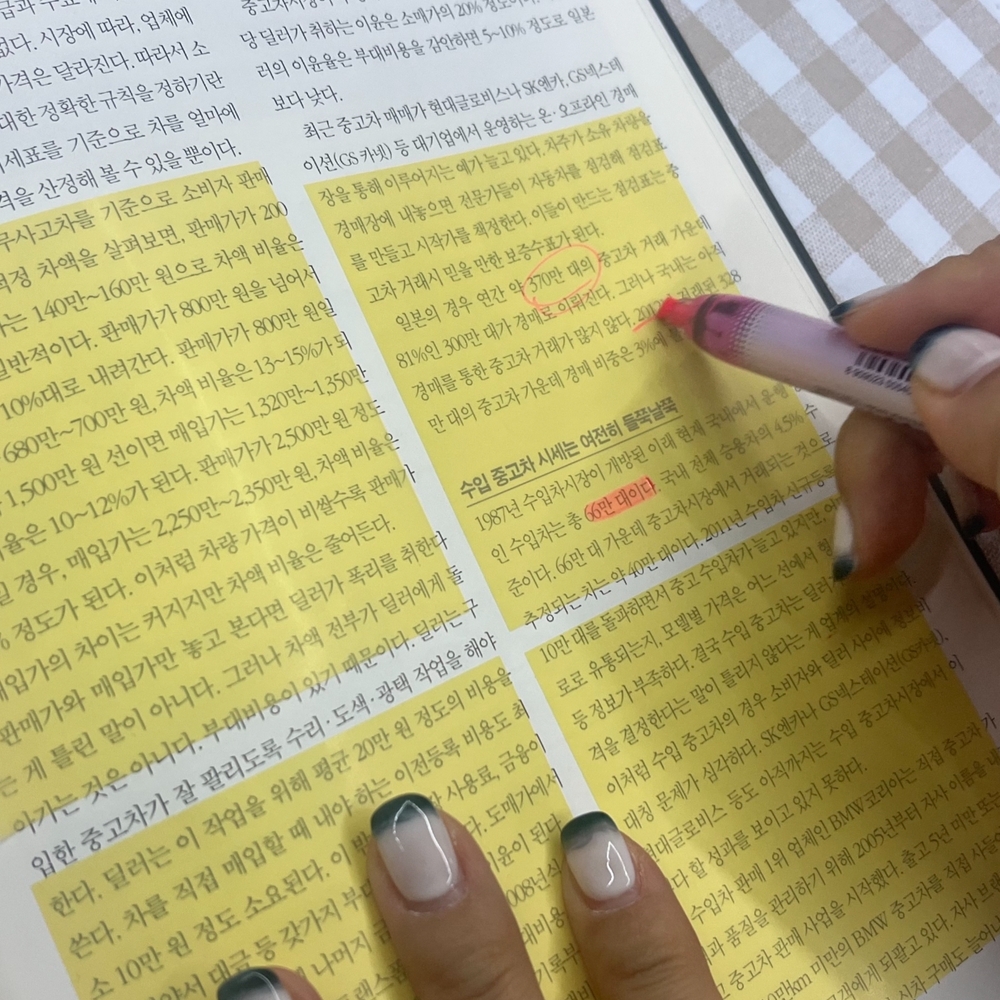 없다. 시장에 따라, 업체에
가격은 달라진다. 따라서 소
대한 정확한 규칙을 정하기란
시세표를 기준으로 차를 얼마에
격을 산정해 볼 수 있을 뿐이다.
무사고차를 기준으로 소비자 판매
적정 차액을 살펴보면, 판매가가 200
는 140만~160만 원으로 차액 비율은
일반적이다. 판매가가 800만 원을 넘어서
10%대로 내려간다. 판매가가 800만 원일
680만~700만 원, 차액 비율은 13~15%가 되
1,500만 원 선이면 매입가는 1,320만~1,350만
율은 10~12%가 된다. 판매가가 2,500만 원 정도
일 경우, 매입가는 2,250만~2,350만 원, 차액 비율은
% 정도가 된다. 이처럼 차량 가격이 비쌀수록 판매가
매입가의 차이는 커지지만 차액 비율은 줄어든다.
판매가와 매입가만 놓고 본다면 딜러가 폭리를 취한다
는 게 틀린 말이 아니다. 그러나 차액 전부가 딜러에게 돌
아가는 것은 아니다. 부대비용이 있기 때문이다. 딜러는 구
입한 중고차가 잘 팔리도록 수리·도색·광택 작업을 해야
한다. 딜러는 이 작업을 위해 평균 20만 원 정도의 비용을
쓴다. 차를 직접 매입할 때 내야 하는 이전등록 비용도 최
소 10만 원 정도 소요된다. 사용료, 금융이
대금 등 갖가지 도매가에서
나머지 이윤이 된다
2008년식
당 딜러가 취하는 이윤은 소매가의 20% 정도
러의 이윤율은 부대비용을 감안하면 5~10% 정도로 일본
보다 낮다.
최근 중고차 매매가 현대글로비스나 SK엔카, GS넥스테
이션(GS 카넷) 등 대기업에서 운영하는 온·오프라인 경매
장을 통해 이루어지는 예가 늘고 있다. 차주가 소유 차량을
경매장에 내놓으면 전문가들이 자동차를 점검해 점검표
를 만들고 시작가를 책정한다. 이들이 만드는 점검표는 중
고차 거래시 믿을 만한 보증수표가 된다.
일본의 경우 연간 약 370만 대의 중고차 거래 가운데
81%인 300만 대가 경매로 이뤄진다. 그러나 국내는 아직
경매를 통한 중고차 거래가 많지 않다. 거래된 328
만 대의 중고차 가운데 경매 비중은 3%에
수입 중고차 시세는 여전히 들쭉날쭉
1987년 수입차시장이 개방된 이래 현재 국내에서 운행
인 수입차는 총 66만 대이다. 국내 전체 승용차의 4.5% 수
준이다. 66만 대 가운데 중고차시장에서 거래되는 것으로
추정되는 차는 약 40만 대이다. 2011년 수입차 신규등록
10만 대를 돌파하면서 중고 수입차가 늘고 있지만,
로로 유통되는지, 모델별 가격은 어느 선에서 형
등 정보가 부족하다. 결국 수입 중고차는 딜러
격을 결정한다는 말이 틀리지 않다는 게 업계의 설명이다.
이처럼 수입 중고차의 경우 소비자와 딜러 사이에 정보비
대칭 문제가 심각하다. SK엔카나 GS넥스테이션(GS카넷),
현대글로비스 등도 아직까지는 수입 중고차시장에서 이
다 할 성과를 보이고 있지 못하다.
수입차 판매 1위 업체인 BMW코리아는 직접 중고차
품질을 관리하기 위해 2005년부터 자사 이름을
중고차 판매 사업을 시작했다. 출고 5년 미만 또는
만km 미만의 BMW 중고차를 직접 사들
되팔고 있다. 자사